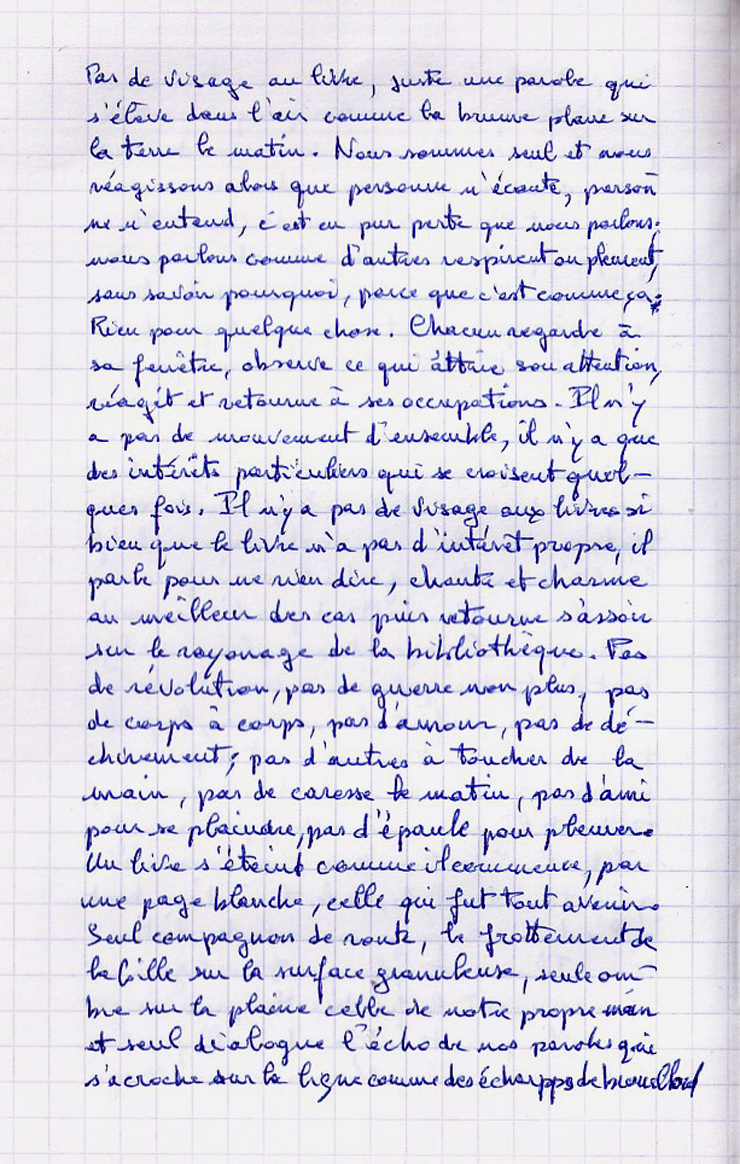 Pas de visage au livre, juste une parole qui
s'élève dans l'air comme la brume plane sur
la terre le matin. Nous sommes seul et nous
réagissons alors que personne n'écoute, person
ne n'entend, c'est en pur perte que nous parlons;
nous parlons comme d'autres respirent ou pleurent,
sans savoir pourquoi, parce que c'est comme ça.
Rien pour quelque chose. Chacun regarde à
sa fenêtre, observe ce qui attire son attention,
réagit et retourne à ses occupations. Il n'y
a pas de mouvement d'ensemble, il n'y a que
des intérêts particuliers qui se croisent quel-
ques fois. Il n'y a pas de visage aux livres si
bien que le livre n'a pas d'intérêt propre, il
parle pour ne rien dire, chante et charme
au meilleur des cas puis retourne s'assoir
sur le rayonage de la bibliothèque. Pas
de révolution, pas de guerre non plus, pas
de corps à corps, pas d'amour, pas de dé-
chirement; pas d'autres à toucher de la
main, pas de caresse le matin, pas d'ami
pour se plaindre, pas d'épaule pour pleurer.
Un livre s'éteint comme il commence, par
une page blanche, celle qui fut tout avenir.
Seul compagnon de route, le frottement de
la bille sur la surface granuleuse, seule om-
bre sur la plaine celle de notre propre main
et seul dialogue l'écho de nos paroles qui
s'acroche sur la ligne comme des écharpps de brouillard